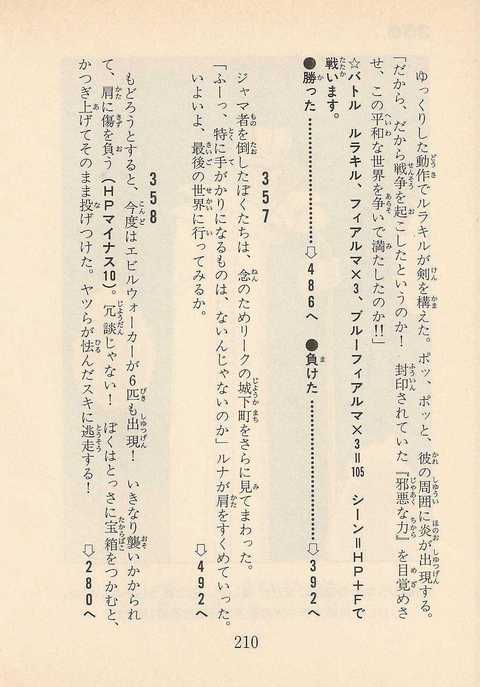 ゆっくりした動作でルラキルが剣を構えた。ポッ、ポッと、彼の周囲に炎が出現する。
「だから、だから戦争を起こしたというのか！　封印されていた『邪悪な力』を目覚めさ
せ、この平和な世界を争いで満たしたのか!!」
☆バトル　ルラキル、フィアルマ×3、ブルーフィアルマ×3＝105　シーン＝HP＋Fで
戦います。
●勝った…………⇨486へ　●負けた…………⇨392へ
357
ジャマ者を倒したぼくたちは、念のためリークの城下町をさらに見てまわった。
「ふーっ、特に手がかりになるものは、ないんじゃないのか」ルナが肩をすくめていった。
いよいよ、最後の世界に行ってみるか。
⇨492へ
358
もどろうとすると、今度はエビルウォーカーが6匹も出現！　いきなり襲いかかられ
て、肩に傷を負う（HPマイナス10）。冗談じゃない！　ぼくはとっさに宝箱をつかむと、
かつぎ上げてそのまま投げつけた。ヤツらが怯んだスキに逃走する！
⇨280へ
210